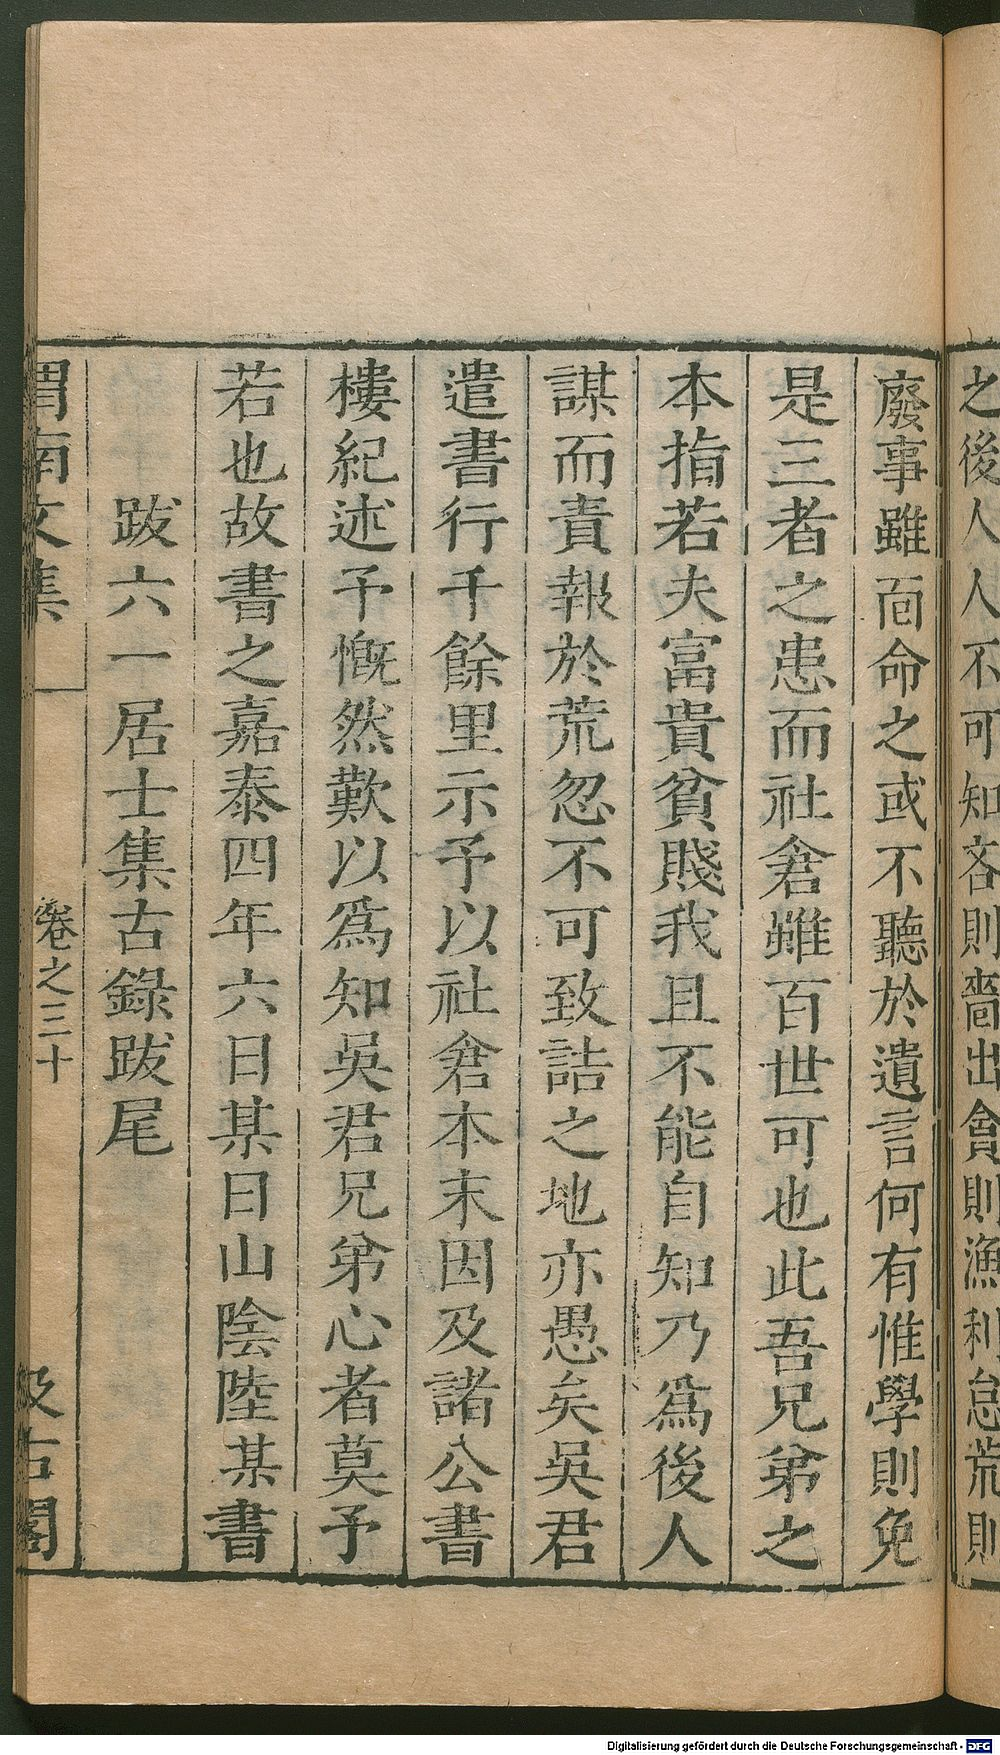 之後人人不可知吝則嗇出貪則漁利怠荒則
廢事雖面命之或不聽於遺言何有惟學則免
是三者之患而社倉雖百世可也此吾兄弟之
本指若夫富貴貧賤我且不能自知乃爲後人
謀而責報於荒忽不可致詰之地亦愚矣吳君
遣書行千餘里示予以社倉本末因及諸公書
樓紀述予慨然歎以爲知吳君兄弟心者莫予
若也故書之嘉泰四年六日某日山陰陸某書
跋六一居士集古錄跋尾
渭南文集
卷之三十
汲古閣
Digitalisierung gefördert durch die Deutsche Forschungsgemeinschaft - DFG